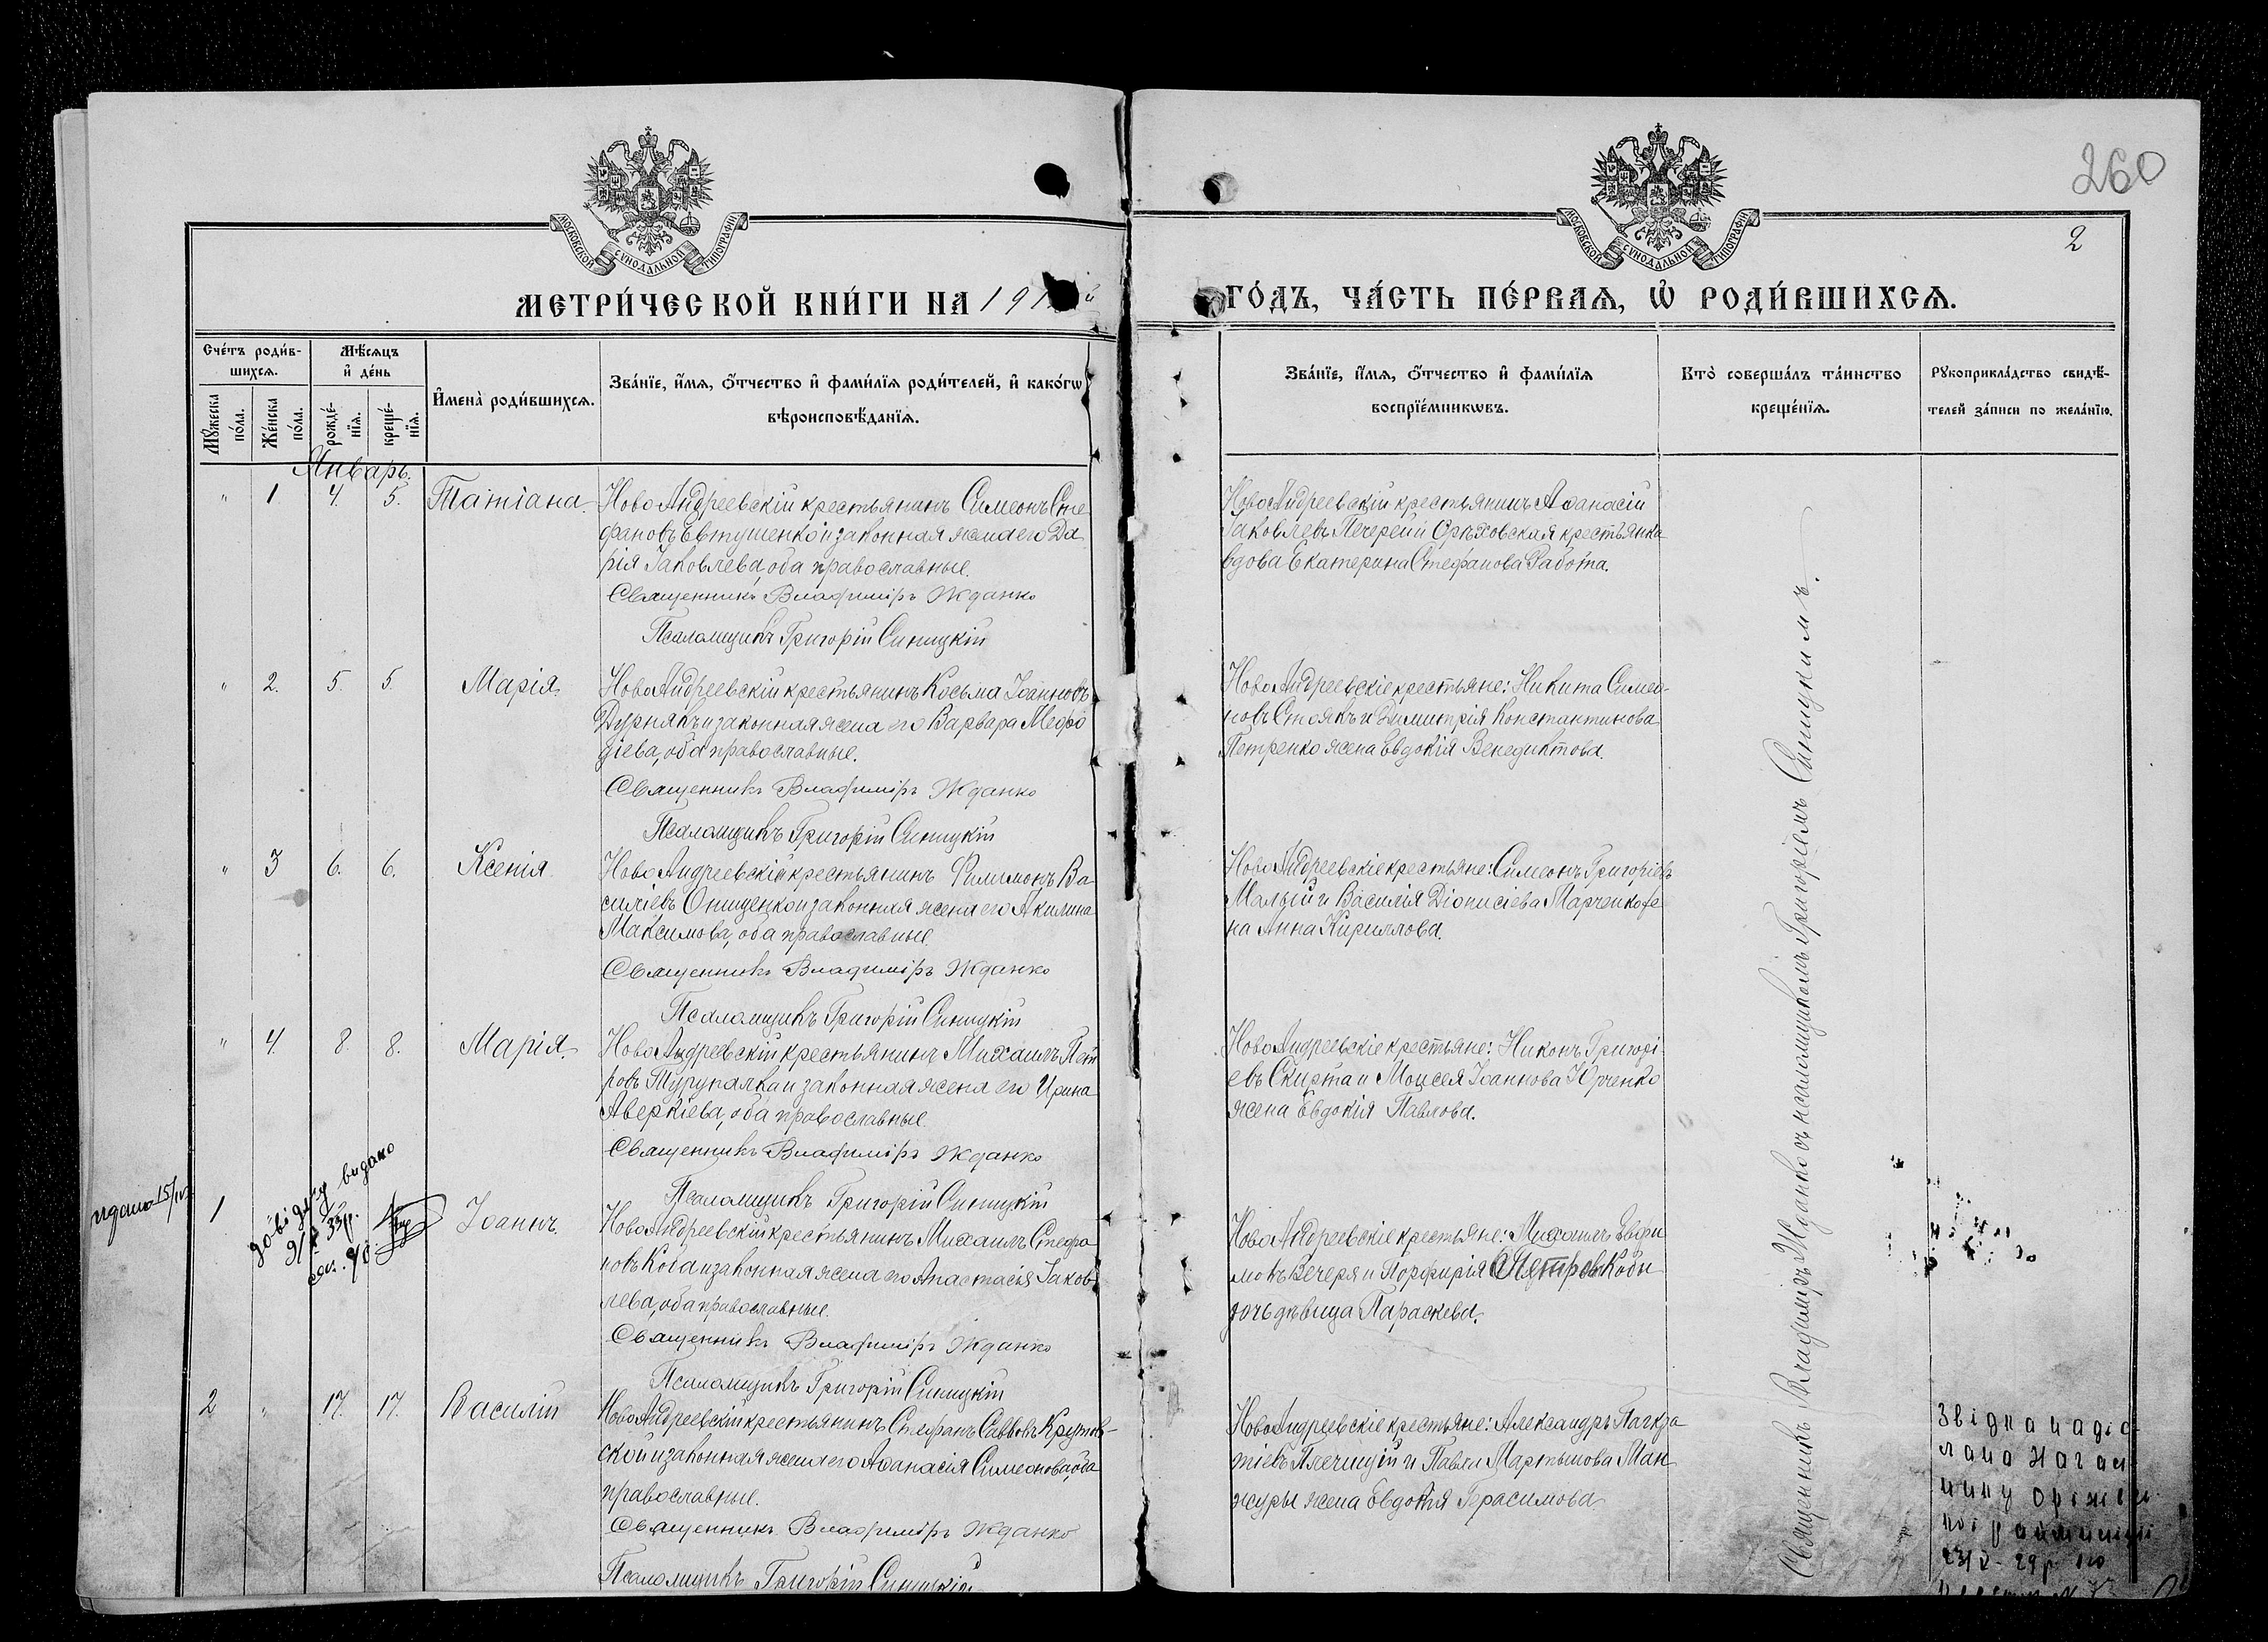 260
2
МОСКОВСКОЙ СѴНОДАЛЬНОЙ ТИПОГРАФІИ
МОСКОВСКОЙ СѴНОДАЛЬНОЙ ТИПОГРАФІИ
МЕТРИ́ЧЕСКОЙ КНИ́ГИ НА 191
ГО́ДЪ, ЧА́СТЬ ПЕ́РВАѦ, Ѡ҆ РОДИ́ВШИХСѦ.
Сче́тъ роди́в-
шихсѧ.
Мѣ́сѧцъ
и҆ де́нь
И҆мена̀ роди́вшихсѧ.
Зва́нїе, и҆́мѧ, ѻ҆́тчество и҆ фами́лїѧ роди́телей, и҆ како́гѡ
вѣроисповѣ́данїѧ.
Мꙋ́жеска по́ла.
Же́нска по́ла.
рожде́-нїѧ.
креще́-нїѧ.
Зва́нїе, и҆́мѧ, ѻ҆́тчество и҆ фами́лїѧ
воспрїе́мникѡвъ.
Кто̀ соверша́лъ та́инство
креще́нїѧ.
Рꙋкоприкла́дство свидѣ́-
телей за́писи по жела́нїю.
Январь.
" 1 4. 5. Татіана.
НовоАндреевскій крестьянинъ Симеонъ Сте
фановъ Евтушенко и законная жена его Да
рія Іаковлева, оба православные.
Священникъ Владиміръ Жданко
Псаломщикъ Григорій Синицкій
НовоАндреевскій крестьянинъ Аѳанасій
Іаковлевъ Печерей и Орѣховская крестьянка
вдова Екатерина Стефанова Работа.
" 2. 5. 5. Марія.
НовоАндреевскій крестьянинъ Косьма Іоанновъ
Дурнякъ и законная жена его Варвара Меѳо
діева, оба православные.
Священникъ Владиміръ Жданко
Псаломщикъ Григорій Синицкій
НовоАндреевскіе крестьяне: Никита Симео-
новъ Стоякъ и Димитрія Константинова
Петренко жена Евдокія Венедиктова.
" 3 6. 6. Ксенія
НовоАндреевскій крестьянинъ Филимонъ Ва
силіевъ Онищенко и законная жена его Акилина
Максимова, оба православные.
Священникъ Владиміръ Жданко
Псаломщикъ Григорій Синицкій
НовоАндреевскіе крестьяне: Симеонъ Григоріевъ
Малый и Василія Діонисіева Марченко же
на Анна Кириллова.
" 4. 8. 8. Марія.
НовоАндреевскій крестьянинъ Михаилъ Пет
ровъ Турупалка и законная жена его Ирина
Аверкіева, оба православные.
Священникъ Владиміръ Жданко
Псаломщикъ Григорій Синицкій
НовоАндреевскіе крестьяне: Никонъ Григорі
евъ Скирта и Моисея Іоаннова Юрченко
жена Евдокія Павлова.
1 Іоаннъ.
довідку видано
НовоАндреевскій крестьянинъ Михаилъ Стефа
новъ Коба и законная жена его Анастасія Іаков
лева, оба православные.
Священникъ Владиміръ Жданко
Псаломщикъ Григорій Синицкій
НовоАндреевскіе крестьяне: Михаилъ Евфи
мовъ Вечеря и Порфирія Кобы
дочь дѣвица Параскева.
2 " 17. 17. Василій
НовоАндреевскій крестьянинъ Стефанъ Саввовъ Крутов-
ской и законная жена его Аѳанасія Симеонова, оба
православные.
Священникъ Владиміръ Жданко
Псаломщикъ Григорій Синицкій
НовоАндреевскіе крестьяне: Александръ Панкра
тіевъ и Павла Мартынова Ман
журы жена Евдокія Герасимова
Священникъ Владиміръ Жданко съ псаломщикомъ Григоріемъ Синицкимъ.